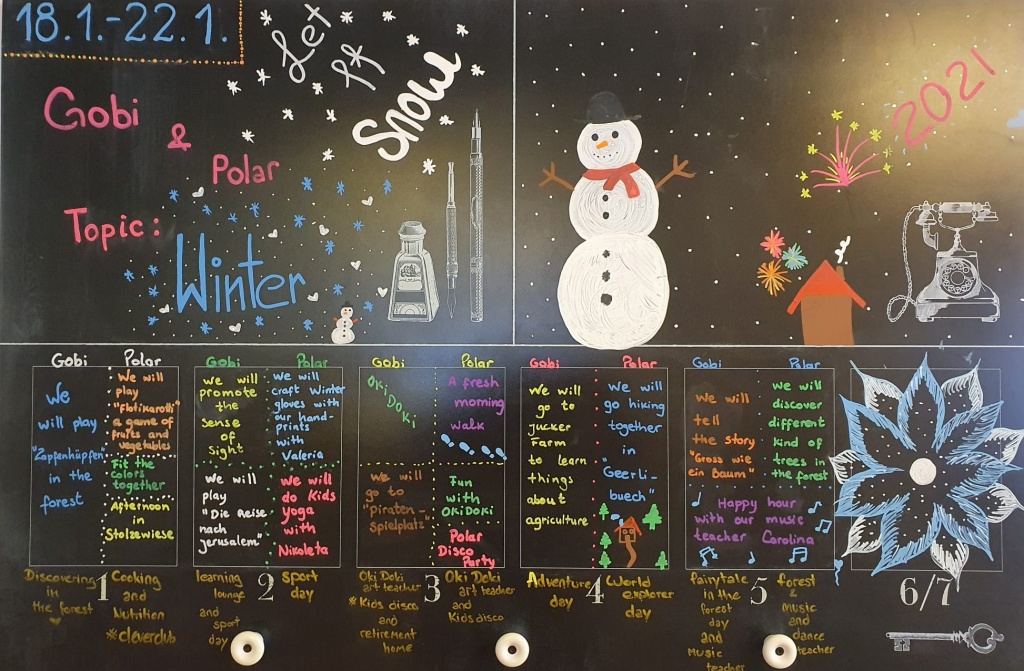 18.1.-22.1.
Let
it
Snow
2021
Gobi
&
Polar
Topic:
Winter
Gobi
We
will play
"Zapfenhüpfen"
in the
forest
Polar
We will
play
"Flotikarotti"
a game of
fruits and
vegetables
Fit the
colors
together
Afternoon
in
Stolzewiese
Gobi
we will
promote
the
sense
of
sight
We will
play
"Die Reise
nach
jerusalem"
Polar
We will
craft Winter
gloves with
our hand-
prints
with
Valeria
We will
do Kids
yoga
with
Nikoleta
Gobi
Oki
Doki
We will
go to
"Piraten-
spielplatz"
Polar
A fresh
morning
walk
Fun
with
OKiDoKi
Polar
Disco
Party
Gobi
We will
go to
jucker
Farm
to learn
things
about
agriculture
Polar
We will
go hiking
together
in
"Geerli-
buech"
Gobi
We will
tell
the story
"Gross wie
ein Baum"
Polar
we will
discover
different
kind of
trees in
the forest
Happy hour
with our music
teacher Carolina
Discovering
in
the forest
1
Cooking
and
Nutrition
#cleverclub
learning
lounge
and
sport
day
2
sport
day
Oki Doki
art teacher
#Kids disco
and
retirement
home
3
Oki Doki
Art teacher
and
Kids disco
Adventure
day
4
World
explorer
day
fairytale
in the
forest
day
and
Music
teacher
5
forest
&
music
and
dance
teacher
6/7